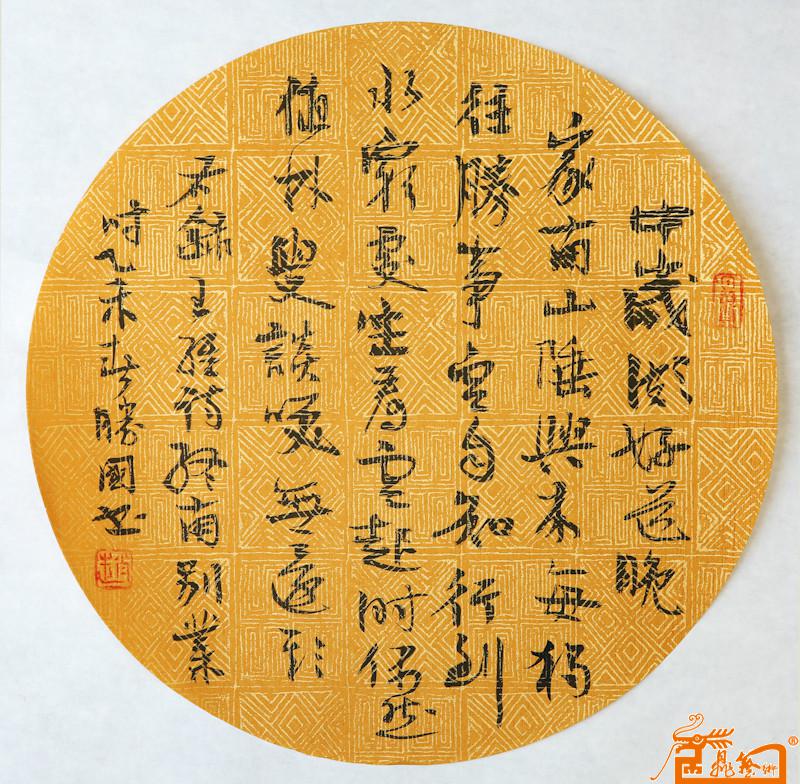 中歲頗好道晚
家南山陲興來每獨
往勝事空自知行到
水窮處坐看雲起時偶然
值林叟談笑無還期
右錄王維詩終南別業
時乙未春勝國書